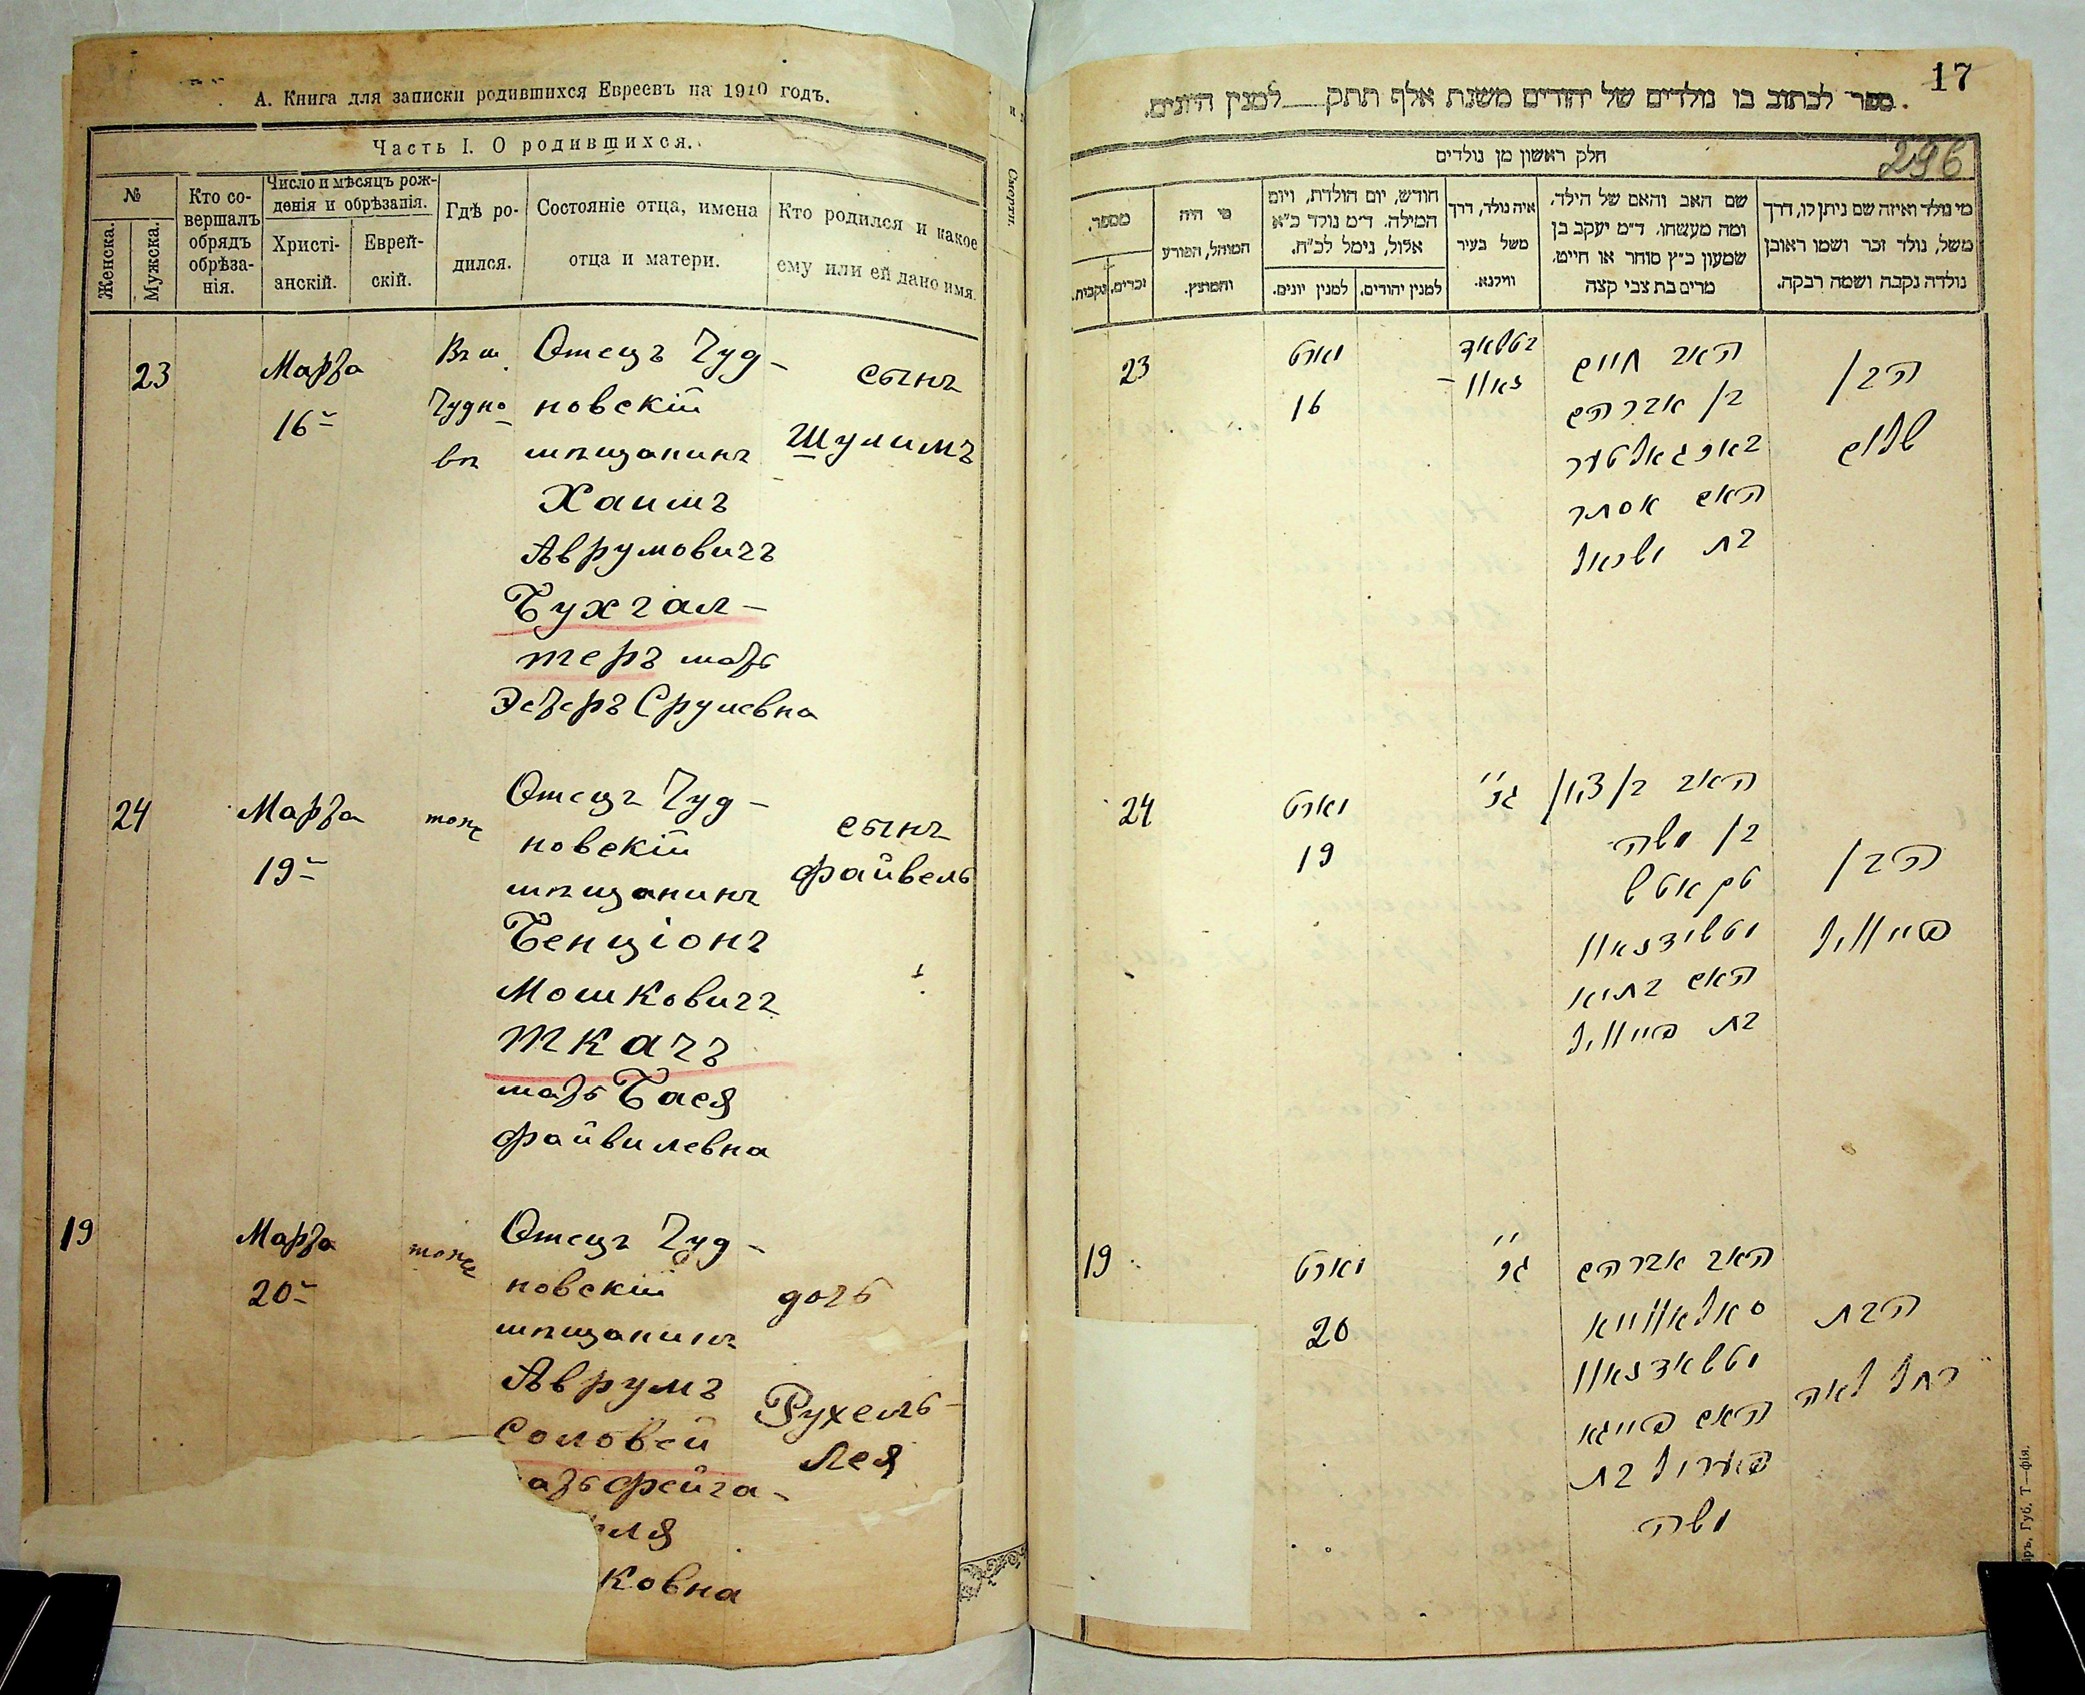 А. Книга для записки родившихся Евреевъ на 1910 годъ.
Часть I. О родившихся.
№
Женска.
Мужска.
Кто со-
вершалъ
обрядъ
обрѣза-
нія.
Число и мѣсяцъ рож-
денія и обрѣзанія.
Христі-
анскій.
Еврей-
скій.
Гдѣ ро-
дился.
Состояніе отца, имена
отца и матери.
Кто родился и какое
ему или ей дано имя.
23
Марта
16
Въ м.
Чудно-
вѣ
Отецъ Чуд-
новскій
мѣщанинъ
Хаимъ
Аврумовичъ
Бухгал-
теръ мать
Эстеръ Срулевна
сынъ
Шулимъ
24
Марта
19
тоже
Отецъ Чуд-
новскій
мѣщанинъ
Бенціонъ
Мошковичъ
Ткачъ
мать Бася
Файвилевна
сынъ
Файвель
19
Марта
20
тоже
Отецъ Чуд-
новскій
мѣщанинъ
Аврумъ
Соловей
ать Фейга-
ля
ковна
дочь
Рухель-
Лея
17
296
ספר לכתוב בו נולדים של יהודים משנת אלף תתק למנין היונים.
חלק ראשון מן נולדים
מי נולד ואיזה שם ניתן לו, דרך
משל, נולד זכר ושמו ראובן
נולדה נקבה ושמה רבקה.
שם האב והאם של הילד,
ומה מעשהו. ד״מ יעקב בן
שמעון כ״ץ סוחר או חייט,
מרים בת צבי קצה
איה נולד, דרך
משל בעיר
ווילנא.
חודש, יום הולדת, ויום
המילה. ד״מ נולד כ״א
אלול, נימל לכ״ח.
למנין יהודים.
למנין יונים.
מי היה
המוהל, הפורע
והמוצץ.
מספר.
זכרים.
נקבות.
23
מארט
16
האב חיים
בן אברהם
באכגאלטער
האם אסתר
בת ישראל
הבן
שלום
24
מארט
19
האב בן ציון
בן משה
טקאטש
האם בתיא
בת פייוויל
הבן
פייוויל
19
מארט
20
האב אברהם
סאלאווייא
האם פייגא
פעריל בת
משה
הבת
רחל לאה
Губ. Т—фія.